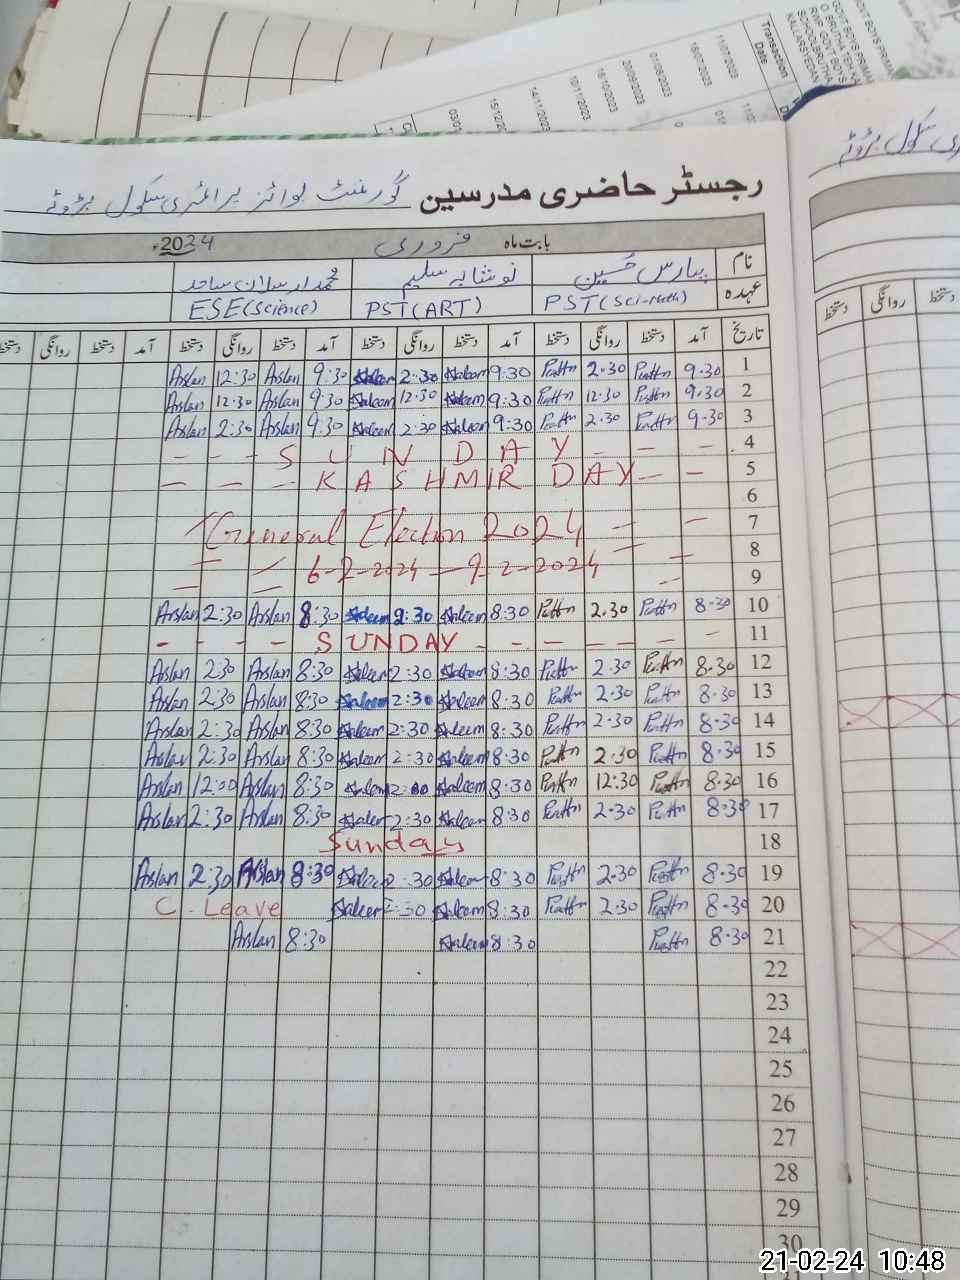 GOVT BOYS PRIMAR
Transaction Date
11/07/2023
18/07/2023
01/08/2023
20/09/2023
18/10/2023
10/11/2023
14/11/2023
رجسٹر حاضری مدرسین گورنمنٹ بوائز پرائمری سکول بڑوٹے
بابت ماہ فروری 2024ء
نام پارس حسین نوشابہ سلیم محمد ارسلان ساجد
عہدہ PST(Sci-Math) PST(ART) ESE(Science)
تاریخ آمد دستخط روانگی دستخط آمد دستخط روانگی دستخط آمد دستخط روانگی دستخط آمد دستخط روانگی دستخط
1 9.30 2.30 9:30 Saleem 2:30 Saleem 9:30 Arslan 12:30 Arslan
2 9.30 12.30 9:30 Saleem 12.30 Saleem 9:30 Arslan 12.30 Arslan
3 9.30 2.30 9:30 Saleem 2:30 Saleem 9:30 Arslan 2:30 Arslan
4 - - - S U N D A Y - - - -
5 - - - K A S H M I R D A Y - - -
6
7 General Election 2024
8 6-2-2024 - 9-2-2024
9
10 8.30 2.30 8:30 Saleem 2:30 Saleem 8:30 Arslan 2:30 Arslan
11 - - - - SUNDAY - - - - - -
12 8.30 2.30 8:30 Saleem 2:30 Saleem 8:30 Arslan 2:30 Arslan
13 8.30 2.30 8:30 Saleem 2:30 Saleem 8:30 Arslan 2:30 Arslan
14 8.30 2.30 8:30 Saleem 2:30 Saleem 8:30 Arslan 2:30 Arslan
15 8.30 2.30 8:30 Saleem 2:30 Saleem 8:30 Arslan 2:30 Arslan
16 8.30 12.30 8:30 Saleem Saleem 8:30 Arslan 12:00 Arslan
17 8.30 2.30 8:30 Saleem 2:30 Saleem 8:30 Arslan 2:30 Arslan
18 Sunday
19 8.30 2.30 8:30 Saleem 2:30 Saleem 8:30 Arslan 2:30 Arslan
20 8.30 2.30 8:30 Saleem 2:30 Saleem C. Leave
21 8.30 8:30 Saleem 8:30 Arslan
22
23
24
25
26
27
28
29
30
21-02-24 10:48